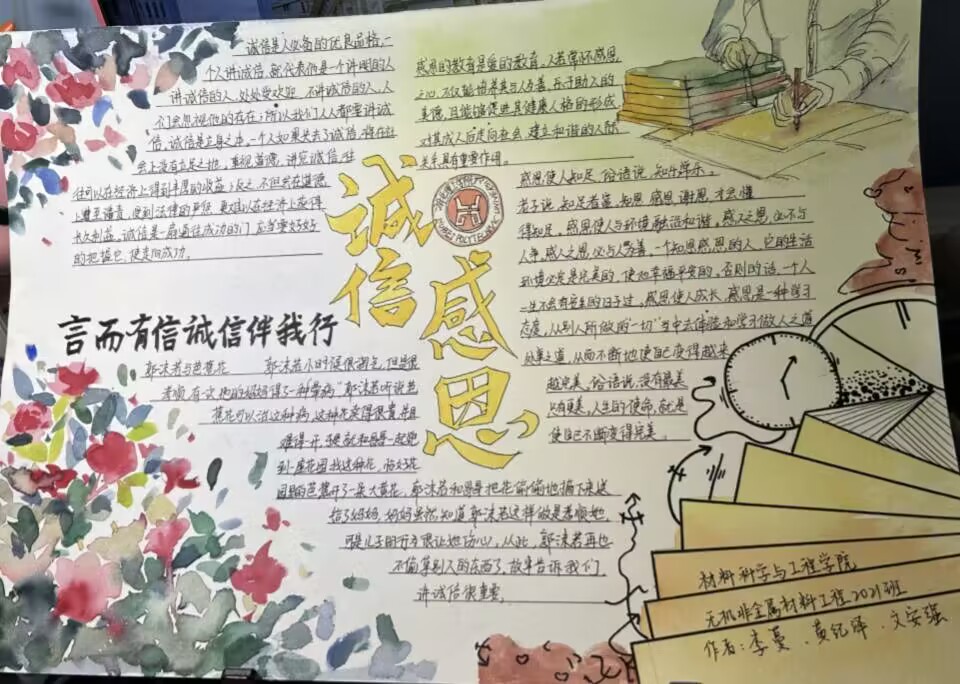 诚信是人必备的优良品格,一
个人讲诚信,就代表他是一个讲明的人
讲诚信的人,处处受欢迎,不讲诚信的人,人
们会忽视他的存在;所以我们人人都要讲诚
信,诚信是立身之本,一个人如果失去了诚信,将在社
会上没有立足之地,重视道德,讲究诚信,往
往可以在经济上得到丰厚的收益;反之,不但会在道德
上蒙受谴责,受到法律的严惩,更难以在经济上获得
长久利益。诚信是一扇通往成功的门,应当要好好
的把握它,使走向成功。
感恩的教育是爱的教育,人若常怀感恩
之心,不仅能培养其与人为善、乐于助人的
美德,且能够促进其健康人格的形成
对其成人后走向社会,建立和谐的人际
关系具有重要作用。
诚信
感恩
感恩使人知足,俗语说,知足常乐。
老子说,知足者富,知恩,感恩,谢恩,才会懂
得知足。感恩使人与环境融洽和谐,感天之恩,必不与
人争,感人之恩,必与人为善。一个知恩感恩的人,它的生活
环境必定是完美的,使如幸福平安的,否则的话,一个人
一生不会有安生的日子过,感恩使人成长,感恩是一种学习
态度,从别人所做的“一切”当中去体验和学习做人之道
处事之道,从而不断地使自己变得越来
越完美,俗语说,没有最美
只有更美,人生的使命,就是
使自己不断变得完美。
言而有信诚信伴我行
郭沫若与芭蕉花 郭沫若小时候很调气,但是很
孝顺,有一次他的妈妈得了一种“晕病”郭沫若听说芭
蕉花可以治这种病,这种花买得很贵,并且
难得一开,于是就和哥哥一起跑
到一座花园找这种花,恰好花
园里的芭蕉开了一朵大黄花,郭沫若和哥哥把花偷偷地摘下来送
给了妈妈,妈妈虽然知道郭沫若这样做是孝顺她,
可是儿子的行为很让她伤心,从此,郭沫若再也
不偷拿别人的东西了,故事告诉我们
讲诚信很重要。
材料科学与工程学院
无机非金属材料工程2021班
作者:李蔓、黄纪泽、文安强